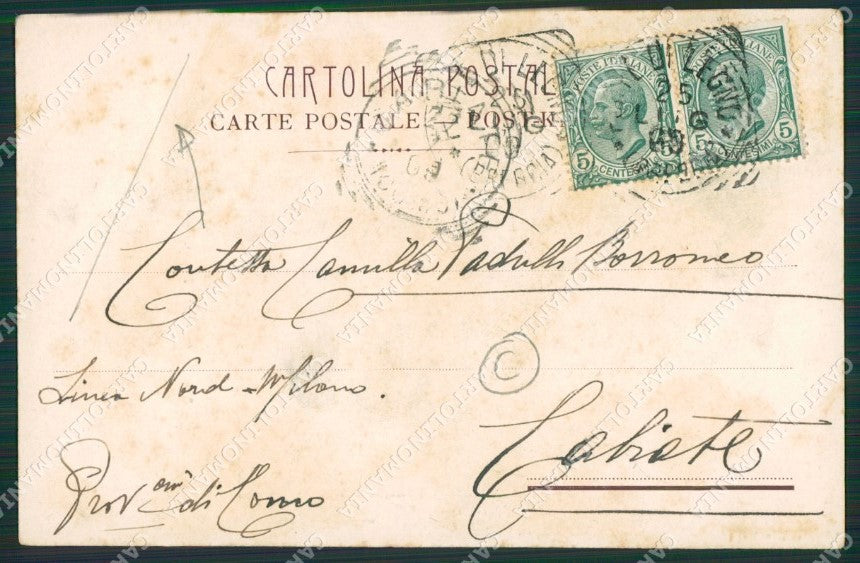 CARTOLINA POSTAL
CARTE POSTALE POSTK
POSTE ITALIANE
5 CENTESIMI 5
POSTE ITALIANE
5
DI LEGNO
(BRESCIA)
25
09
Contessa Camilla Padulli Borromeo
Linea Nord - Milano.
C
Cabiate
Prov di Como
CARTOLINOMANIA